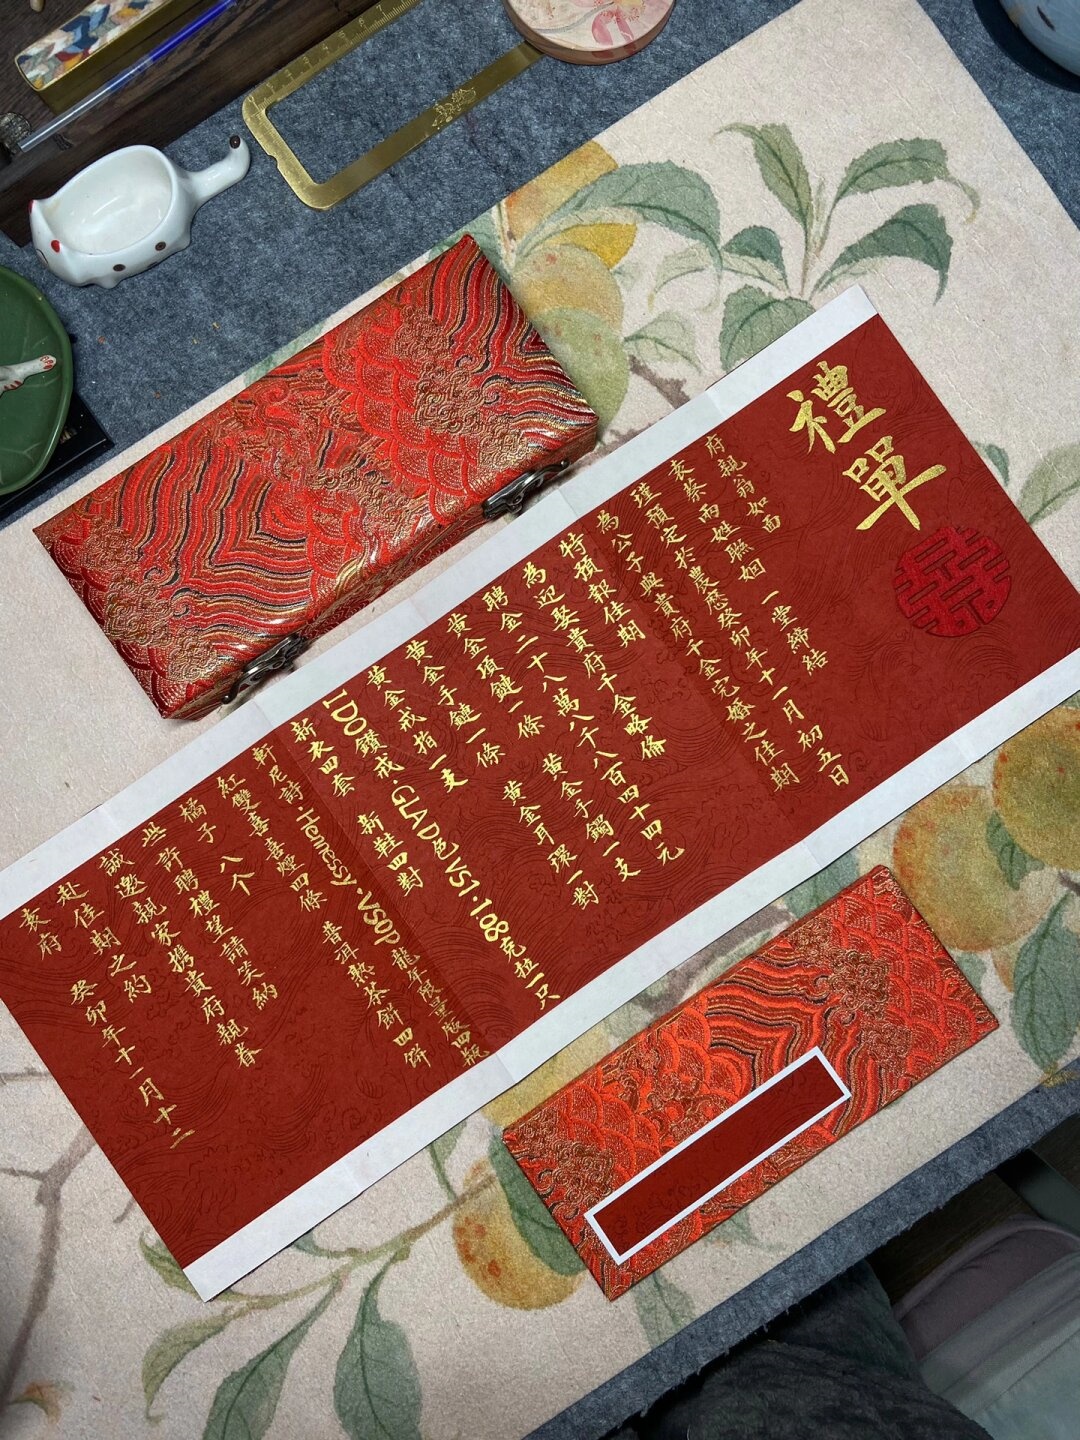 禮單
囍
府親翁如面
袁蔡両姓聯姻 一堂締結
謹預定於農歷癸卯年十一月初五日
為公子與貴府千金完婚之佳期
特預報佳期
為迎娶貴府千金略備
聘金二十八萬八千八百四十四元
黄金項鏈一條 黄金手鐲一支
黄金手鏈一條 黄金耳環一對
黄金戒指一支
IDO鑽戒·GIAD色VS1·1.08克拉一只
新衣四套 新鞋四對
軒尼詩·Hennessy·VSOP龍年限量版四瓶
紅雙喜喜煙四條 普洱熟茶餅四餅
橘子八个
些許聘禮望請笑納
誠邀親家携貴府親眷
赴佳期之約
袁府 癸卯年十一月十二